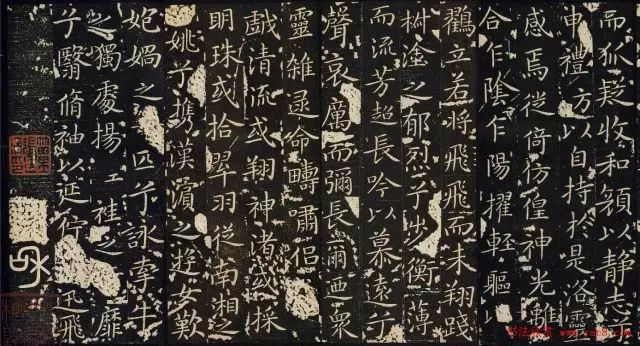 而狐疑收和顔以静志
申禮方以自持於是洛靈
感焉徙倚彷徨神光離
合乍陰乍陽擢輕軀以
鸖立若將飛飛而未翔踐
椒塗之郁烈兮步衡薄
而流芳超長吟以慕遠兮
聲哀厲而彌長爾迺衆
靈雜遝命疇嘯侶
戲清流或翔神渚或採
明珠或拾翠羽從南湘之
姚兮携漢濱之遊女歎
妃媧之匹兮詠牽牛
之獨處揚袿之靡
兮翳脩袖以延佇迅飛